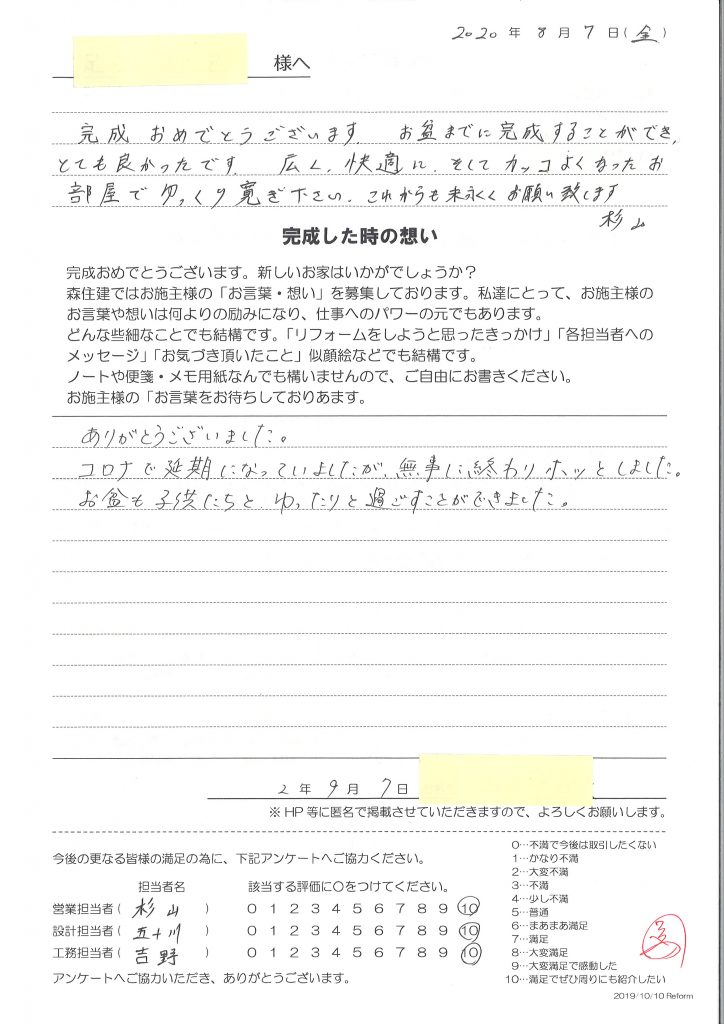 2020 年 8 月 7 日(金)
様へ
完成 おめでとうございます。 お盆までに完成することができ、
とても良かったです。 広く、快適に、そしてカッコよくなったお
部屋でゆっくり寛ぎ下さい。これからも末永くお願い致します
杉山
完成した時の想い
完成おめでとうございます。新しいお家はいかがでしょうか?
森住建ではお施主様の「お言葉・想い」を募集しております。私達にとって、お施主様の
お言葉や想いは何よりの励みになり、仕事へのパワーの元でもあります。
どんな些細なことでも結構です。「リフォームをしようと思ったきっかけ」「各担当者への
メッセージ」「お気づき頂いたこと」似顔絵などでも結構です。
ノートや便箋・メモ用紙なんでも構いませんので、ご自由にお書きください。
お施主様の「お言葉をお待ちしておりあます。
ありがとうございました。
コロナで延期になっていましたが、無事に終わりホッとしました。
お盆も子供たちと、ゆったりと過ごすことができました。
2 年 9 月 7 日
※HP等に匿名で掲載させていただきますので、よろしくお願いします。
今後の更なる皆様の満足の為に、下記アンケートへご協力ください。
担当者名 該当する評価に○をつけてください。
営業担当者( 杉山 ) 0 1 2 3 4 5 6 7 8 9 10
設計担当者( 五十川 ) 0 1 2 3 4 5 6 7 8 9 10
工務担当者( 吉野 ) 0 1 2 3 4 5 6 7 8 9 10
アンケートへご協力いただき、ありがとうございます。
0…不満で今後は取引したくない
1…かなり不満
2…大変不満
3…不満
4…少し不満
5…普通
6…まあまあ満足
7…満足
8…大変満足
9…大変満足で感動した
10…満足でぜひ周りにも紹介したい
2019/10/10 Reform